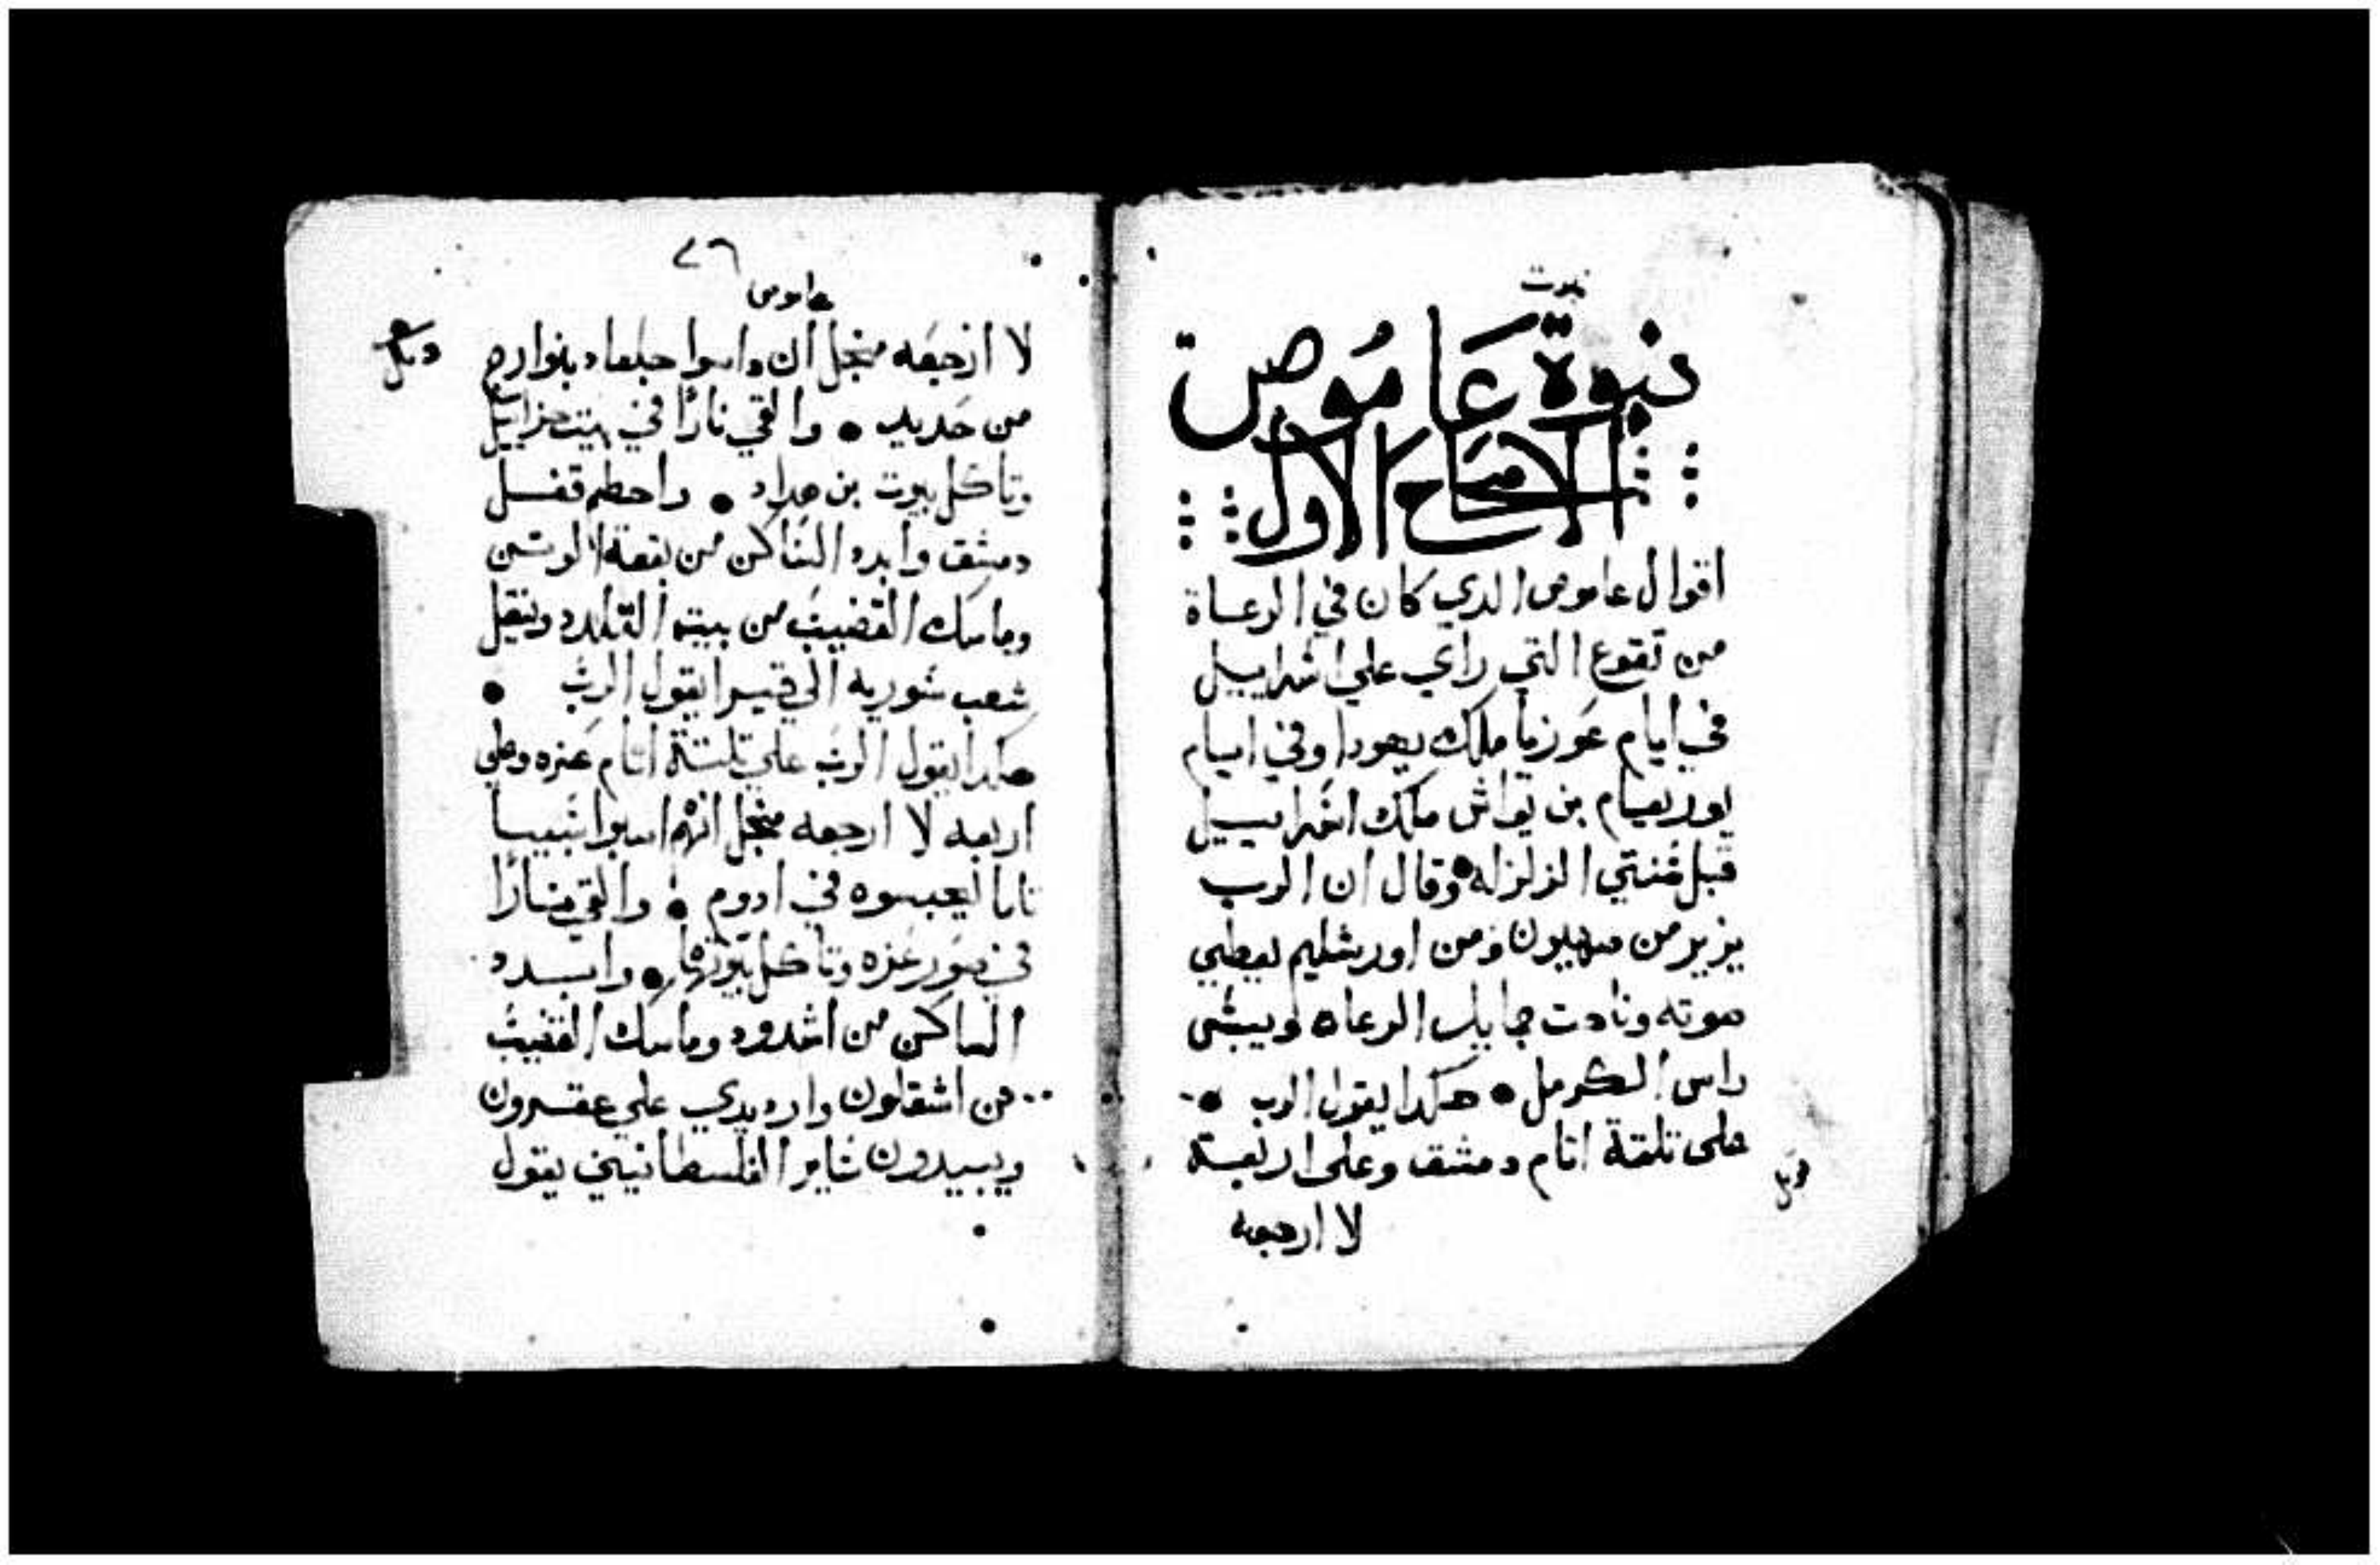 نبوت
نبوة عاموص
الاصحاح الاول
اقوال عاموص الدي كان في الرعاة
من تقوع التي راي علي اشراييل
في ايام عوزيا ملك يهودا وفي ايام
يوربعام بن يواش ملك اشراييل
قبل شنتي الزلزله وقال ان الرب
يزير من صهيون ومن اورشليم يعطي
صوته وناحت جمايل الرعاه ويبش
راس الكرمل هكدا يقول الرب
على تلتة اتام دمشق وعلى اربعة
لا ارجعه
٧٦
عاموص
لا ارجعه منجل ان داسوا جلعاد بنوارج
من حديد والقي نارا في بيت حزاييل
وتاكل بيوت بن هداد واحطم قفل
دمشق وابدد الساكن من بقعة الوتن
وماسك القضيب من بيت التلدد وينقل
شعب شوريه الي قيرا يقول الرب
هكدا يقول الرب علي تلتة اتام عزه وعلي
اربعه لا ارجعه منجل انهم اسبوا شبيا
تاما ليحبسوه في ادوم والقي نارا
في صور عزه وتاكل بيوتها وابدد
الساكن من اشدود وماسك القضيب
من اشقلون وارد يدي علي عقرون
ويبيدون شاير الفلسطانيين يقول